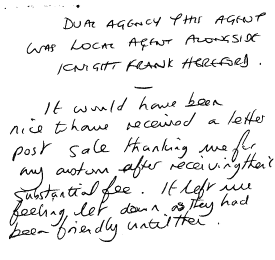 DUAL AGENCY THIS AGENT
WAS LOCAL AGENT ALONGSIDE
KNIGHT FRANK HEREFORD.
It would have been
nice to have received a letter
post sale thanking me for
my custom after receiving their
substantial fee. It left me
feeling let down as they had
been friendly until then.